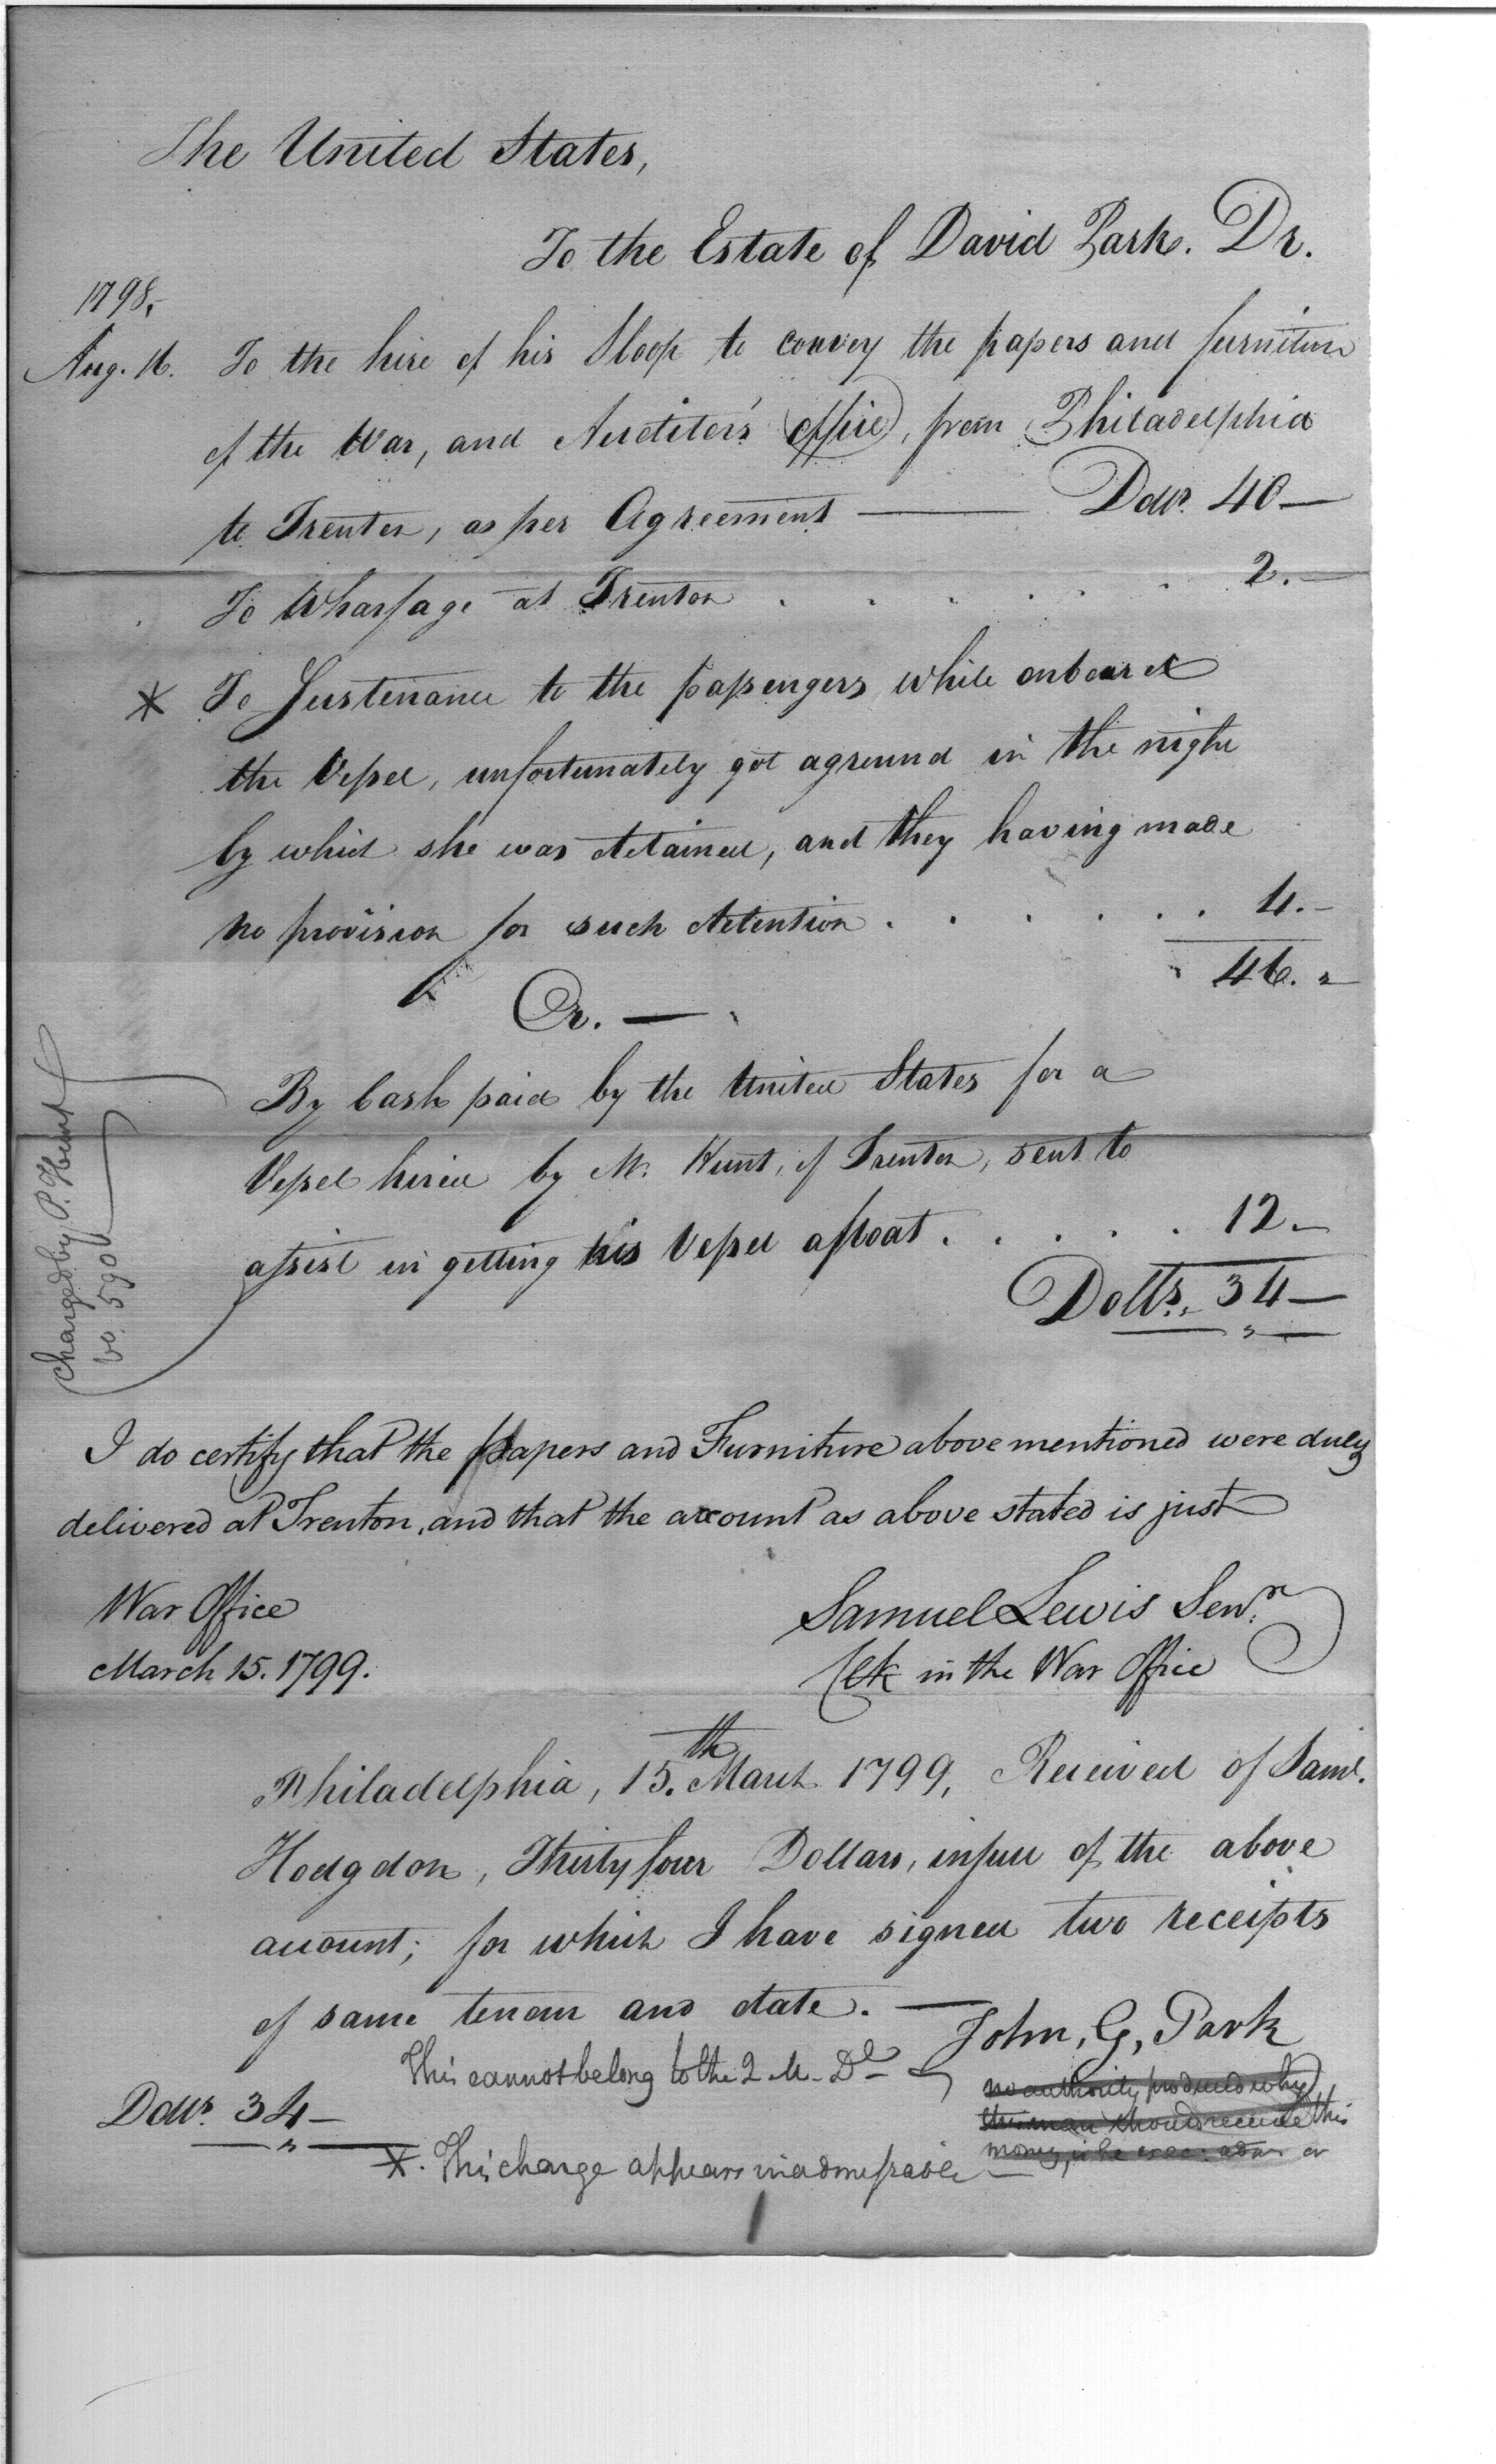 The United States,
To the Estate of David Park. Dr.
1798,
Aug. 16. To the hire of his Sloop to convey the papers and furniture
of the War, and Auditor's office, from Philadelphia
to Trenton, as per Agreement — Dolls. 40 —
To Wharfage at Trenton . . . . . . 2. —
* To Sustenance to the passengers while onboard
the Vessel, unfortunately got aground in the night
by which she was detained, and they having made
no provision for such detention . . . . . . 4. -
46. "
Cr. —
By Cash paid by the United States for a
Vessel hired by Mr. Hunt, of Trenton, sent to
assist in getting his Vessel afloat . . . . . 12 —
Dolls. 34 —
charged by P. Hunt
vo. 590
I do certify that the papers and Furniture above mentioned were duly
delivered at Trenton, and that the account as above stated is just
War Office
March 15. 1799.
Samuel Lewis Senr.
Clk in the War Office
Philadelphia, 15.th March 1799, Received of Saml.
Hodgdon, Thirty four Dollars, in full of the above
account; for which I have signed two receipts
of same tenor and date. —
John, G, Park
This cannot belong to the 2 M. D —
no authority produced why
this man should receive this
money, is he
Dolls. 34 —
*. This charge appears inadmissable —